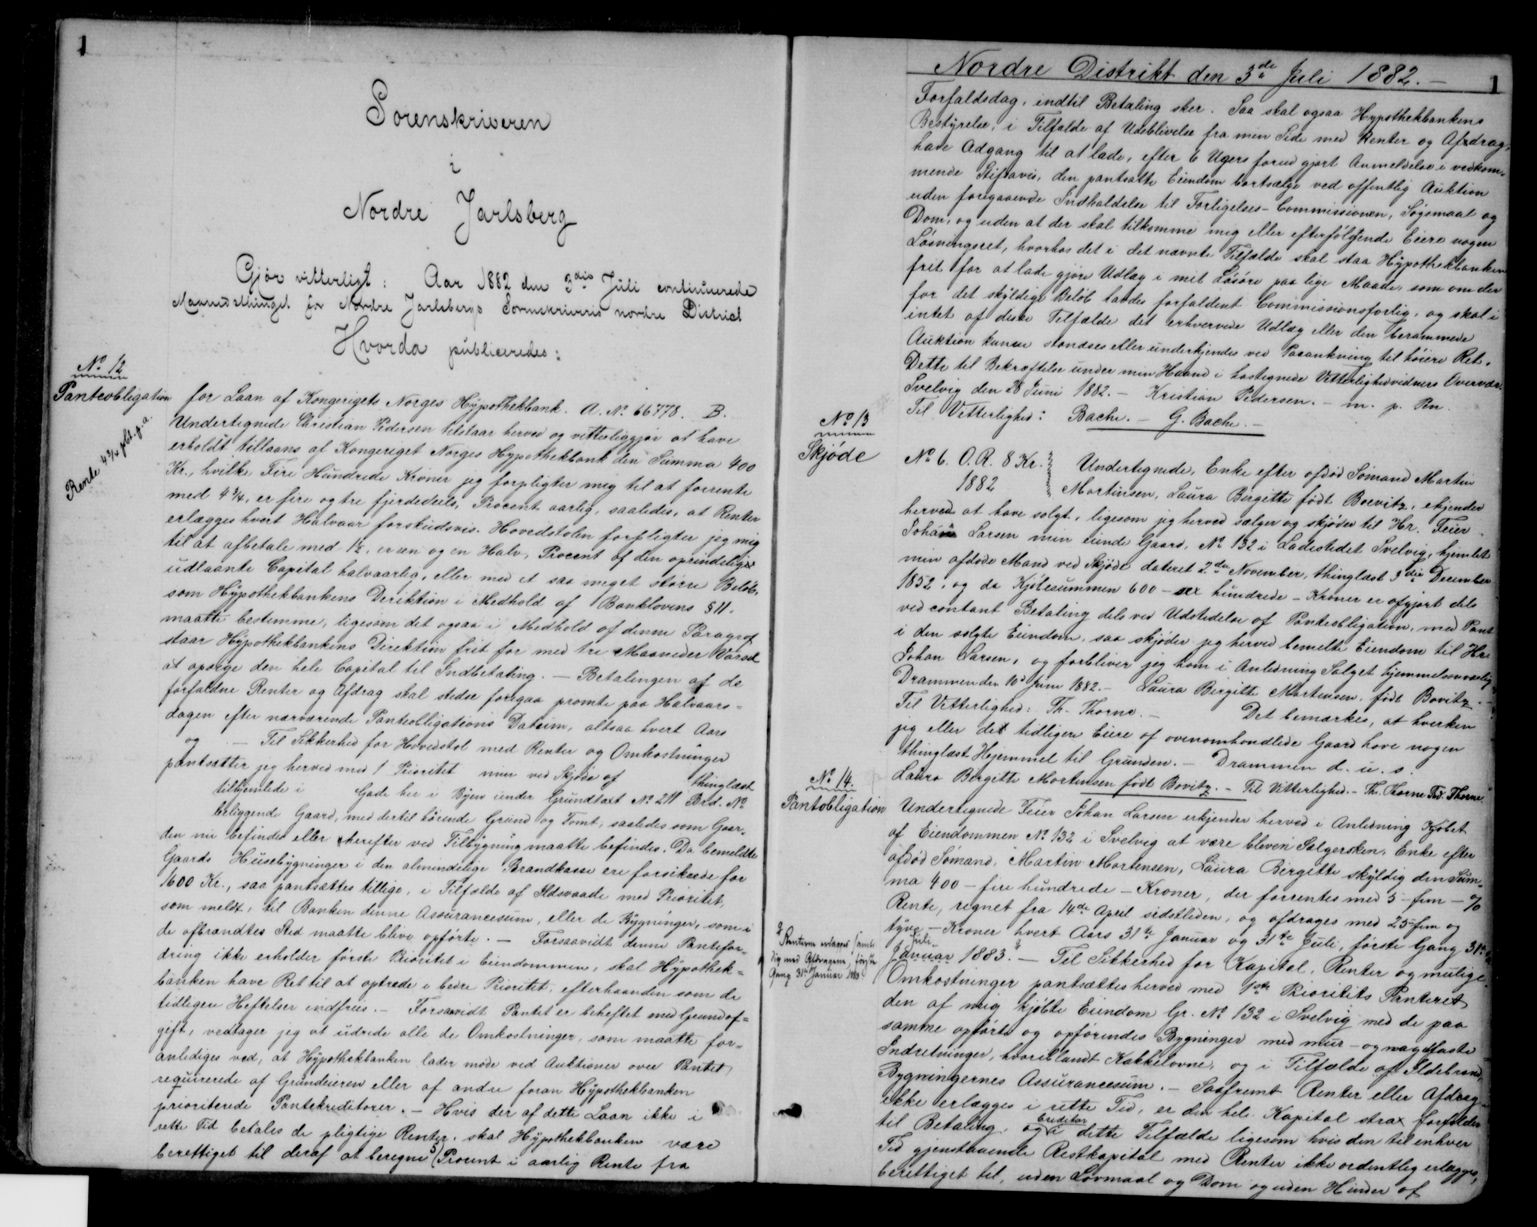 1
Sorenskriveren
i
Nordre Jarlsberg
Gjør vitterligt: Aar 1882 den 3die Juli continuerede
Maanedsthinget for Nordre Jarlsbergs Sorenskriveris nordre District
Hvorda publiceredes:
No 12
Panteobligation
Rente 4 3/4 pCt. p.a.
for Laan af Kongeriget Norges Hypothekbank. A. No 66778. B.
Undertegnede Christian Pedersen tilstaar herved og vitterliggjør at have
erholdt tillaans af Kongeriget Norges Hypothekbank den Summa 400
Kr., hvilke Fire Hundrede Kroner jeg forpligter meg til at forrente
med 4 3/4, er fire og tre fjerdedeels, Procent aarlig, saaledes, at Renten
erlægges hvert Halvaar forskudsvis. Hovedstolen forpligter jeg mig
til at afbetale med 1 1/2, er een og en Halv, Procent af den oprindelige
udlaante Capital halvaarlig, eller med et saa meget større Beløb,
som Hypothekbankens Direktion i Medhold af Banklovens § 11.
maatte bestemme, ligesom det ogsaa i Medhold af denne Paragraf
staar Hypothekbankens Direktion frit for med tre Maaneders Varsel
at opsige den hele Capital til Indbetaling. — Betalingen af de
forfaldne Renter og Afdrag skal stedse foregaa promte paa Halvaars-
dagen efter nærværende Panteobligations Datum, altsaa hvert Aars
og — Til Sikkerhed for Hovedstol med Renter og Omkostninger
pantsætter jeg herved med 1 Prioritet min ved Skjøde af thinglæst
tilhjemlede i Gade her i Byen under Grundtaxt No 211 Brd. No
beliggende Gaard, med dertil hørende Grund og Tomt, saaledes som Gaar-
den nu befindes eller herefter ved Tilbygning maatte befindes. Da bemeldte
Gaards Huusbygninger i den almindelige Brandkasse ere forsikrede for
1600 Kr., saa pantsættes tillige, i Tilfælde af Ildsvaade med Prioritet,
som meldt, til Banken denne Assurancesum, eller de Bygninger, som i
de afbrændtes Sted maatte blive opførte. — Forsaavidt denne Pantefor-
dring ikke erholder første Prioritet i Eiendommen, skal Hypothek-
banken have Ret til at optræde i bedre Prioritet, efterhaanden som de
tidligere Heftelser indfries. — Forsaavidt Pantet er beheftet med Grundaf-
gift, vedtager jeg at udrede alle de Omkostninger, som maatte for-
anlediges ved, at Hypothekbanken lader møde ved Auktioner over Pantet,
requirerede af Grundeieren eller af andre foran Hypothekbanken
prioriterede Pantekreditorer. — Hvis der af dette Laan ikke i
rette Tid betales de pligtige Renter, skal Hypothekbanken være
berettiget til deraf at beregne 5 Procent i aarlig Rente fra
Nordre Distrikt den 3de Juli 1882. —
1
Forfaldsdag, indtil Betaling sker. Saa skal ogsaa Hypothekbankens
Bestyrelse, i Tilfælde af Udeblivelse fra min Side med Renter og Afdrag,
have Adgang til at lade, efter 6 Ugers forud gjort Anmeldelse i vedkom-
mende Stiftavis, den pantsatte Eiendom bortsælge ved offentlig Auktion
uden foregaaende Indkaldelse til Forligelses-Commissionen, Søgsmaal og
Dom, og uden at der skal tilkomme mig eller efterfølgende Eiere nogen
Løsningsret, hvorhos det i det nævnte Tilfælde skal staa Hypothekbanken
frit for at lade gjøre Udlæg i mit Løsøre paa lige Maade, som om der
for det skyldige Beløb havdes forfaldent Commissionsforlig, og skal i
intet af disse Tilfælde det erhvervede Udlæg eller den berammede
Auktion kunne standses eller underkjendes ved Paaankning til høiere Ret.
Dette til Bekræftelse under min Haand i hostegnede Vitterlighedsvidners Overvær.
Svelvig den 28 Juni 1882. — Kristian Pedersen. — m. p. Pen.
Til Vitterlighed: Bache. — G. Bache. —
No 13
Skjøde
No 6. O. R. 8 Kr.
1882
Undertegnede, Enke efter afdød Sømand Martin
Mortensen, Laura Bergitte født Bovitz, erkjender
herved at have solgt, ligesom jeg herved sælger og skjøder til Hr. Feier
Johan Larsen min eiende Gaard, No 132 i Ladestedet Svelvig, hjemlet
min afdøde Mand ved Skjøde dateret 2den November, thinglæst 3die December
1852, og da Kjøbesummen 600 — sex hundrede — Kroner er afgjort dels
ved contant Betaling dels ved Udstedelse af Panteobligation, med Pant
i den solgte Eiendom, saa skjøder jeg herved bemeldte Eiendom til Hr.
Johan Larsen, og forbliver jeg ham i Anledning Salget hjemmelsansvarlig
Drammen den 10 Juni 1882. — Laura Birgitte Mortensen, født Bovitz. —
Til Vitterlighed: Th. Thorne. — Det bemærkes, at hverken
jeg eller det tidligere Eiere af ovenomhandlede Gaard have nogen
thinglæst Hjemmel til Grunden. — Drammen d. u. s.
Laura Birgitte Mortensen født Bovitz. — Til Vitterlighed. — Th. Thorne
No 14.
Pantobligation
Undertegnede Feier Johan Larsen erkjender herved i Anledning Kjøbet
af Eiendommen No 132 i Svelvig at være bleven Sælgersken, Enke efter
afdød Sømand, Martin Mortensen, Laura Bergitte skyldig den Sum-
ma 400 — fire hundrede — Kroner, der forrentes med 5 — fem — %
Rente, regnet fra 14de April sidstleden, og afdrages med 25 — fem og
tyve — Kroner hvert Aars 31te Januar og 31te Juli, første Gang 31te
Juli
Januar 1883. — Til Sikkerhed for Kapital, Renter og mulige
Omkostninger pantsættes herved med 1ste Prioritets Panteret
den af mig kjøbte Eiendom Gr. No 132 i Svelvig med de paa
samme opførte og opførendes Bygninger med mur- og nagelfaste
Indretninger, hvoriblandt Kakkelovne, og i Tilfælde af Ildebrand,
Bygningernes Assurancesum. — Saafremt Renter eller Afdrag
ikke erlægges i rette Tid, er den hele Kapital strax forfalden
til Betaling, og Creditor i dette Tilfælde ligesom hvis den til enhver
Tid gjenstaaende Restkapital med Renter ikke ordentlig erlægges,
berettiget til, uden Lovmaal og Dom og uden Hinder af
Renterne erlægges samti-
dig med Afdragene, første
Gang 31te Januar 1883.